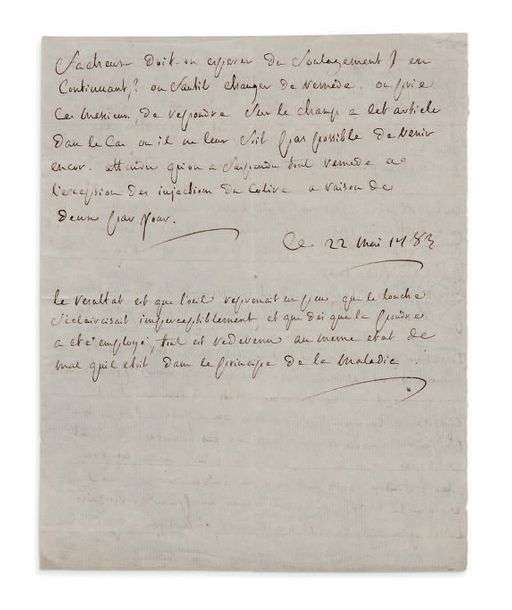 facheux doit on esperer du Soulagement, en
Continuant? ou faut il changer de remede. on prie
Ces messieurs, de repondre Sur le champ a cet article
dans le Cas ou il ne leur Soit pas possible de venir
encor. attendu qu'on a Suspendu tout remede a
l'exception des injection du Colire a raison de
deux par jour.
Ce 22 mai 1783
le resultat est que l'oeil reprenait un peu que le louche
S'eclaircisait imperceptiblement, et que dès que la poudre
a eté employé, tout est redevenu au meme etat de
mal quil etoit dans le principe de la maladie.